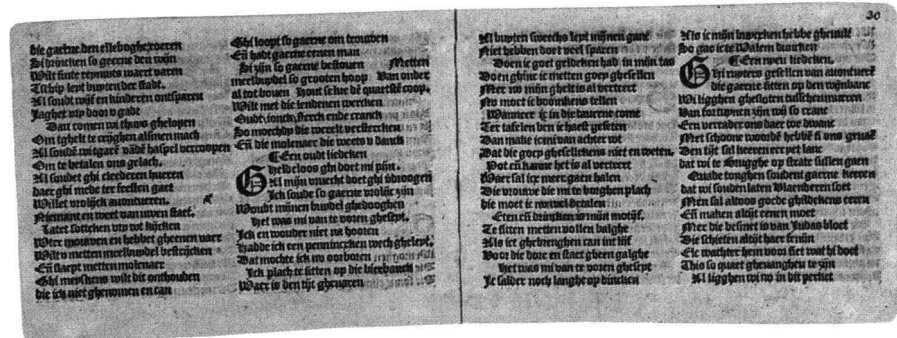 die gaerne den elleboghe roeren
Si drincken so geerne den wijn
Wilt sinte reynuyts waert varen
Tschip leyt buyten der stadt,
Al soudt wijf en kinderen ontsparen
Jaghet vtp door v gadt
Dan comen wi thuys ghelopen
Om tghelt te crijghen alsmen mach
Al soudmē vercoopen
Om te betalen ons gelach,
Al soudet ghi cleederen hueren
daer ghi mede ter feesten gaet
Willet vrolijck auontueren,
Niemant en weet van uwen staet.
Laet
Wter mouwen en hebbet ghenen vaer
Wilt v metten meelbuydel bestrijcken
Eñ slaept metten molenaer
Ghi meyskens wilt dit onthouden
die ick niet ghenomen en can
Ghi loopt so gaerne om trouwen
Eñ hadt gaerne eenen man
Si zijn so gaerne bestouen Metten
meelbuydel so grooten hoop Van onder
al tot bouen Hout sciue dē quartstē coop,
Wilt met die lendenen wercken
Oudt, ionck, sterck ende cranck
So moechdy die weerelt verstercken
Eñ die molenaer die weets v danck
¶ Een oudt liedeken
Gheldeloos ghi doet mi pijn.
Al mijn vruecht doet ghi
Ick soude so gaerne vrolijc zijn
Woudt mijnen buydel ghedooghen
Het was mi van te voren ghesept,
Ick en wouder niet na hooren
Hadde ick een pennincxken wech gheleyt,
Dat mochte ick nv oorboren
Ick plach te sitten op die bierbanck
Waer is den tijt gheuaren
20
Al buyten sweechs leyt mijnen ganc
Niet hebben doet veel sparen
Doen ic goet geldeken had in mijn tas
Doen ghinc ic metten goey ghesellen
Mer nv mijn ghelt is al verteert
Nv moet ic boomkens tellen
Wanneer ic in die tauerne come
Ter tafelen ben ic haest geseten
Dan make icmi van achter wt
Dat die goey ghesellekens niet en weten.
Pot eñ kanne het is al verteert
Waer sal icx meer gaen halen
Die vrouwe die mi te borghen plach
die moet ic nv wel betalen
Eten eñ drincken is mijn motijf,
Te sitten metten vollen balghe
Als ict ghebrenghen can int lijf
Voor die dore en staet gheen galghe
Het was mi van te voren ghesept
Ic salder noch langhe op dincken
Als ic mijn bwercken hebbe ghewilt
So gae ic te Walem dincken
¶ Een nyeu liedeken.
Ghi ruyters gesellen van auontuerē
die gaerne sitten op den wijnbanc
Wi ligghen ghesloten tusschen mueren
Van tortuynen zijn wi so cranc
Een verrader ons daer toe dwanc
Met schoone woordē hebbē si ons
Den tijt sal keeren eer yet lanc
dat wi te Brugghe op strate sullen gaen
Quade tonghen soudent gaerne keeren
dat wi souden laten Vlaenderen soet
Men sal altoos goede ghildekens eeren
Eñ maken altijt eenen moet
Mer die besmet is van Judas bloet
Die schieten altijt haer fenijn
Elc wachter hem voor siet wat hi doet
Tis so quaet gheuanghen te zijn
Al ligghen wi nv in dit perket